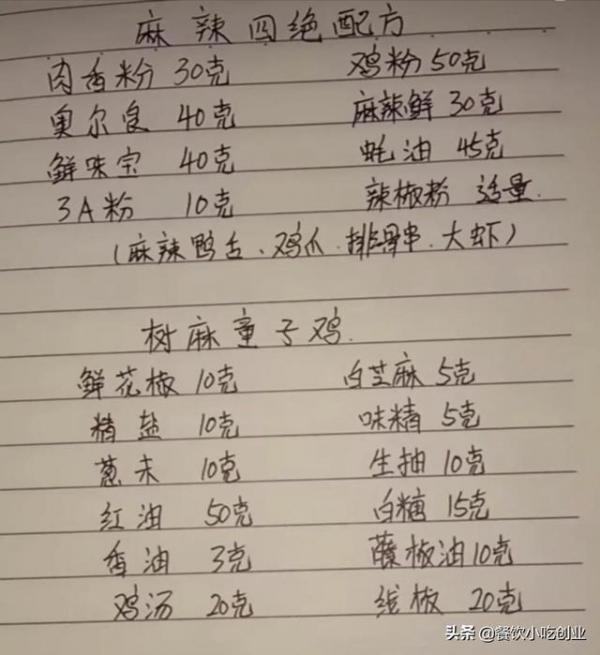 麻辣四绝配方
肉香粉 30克 鸡粉 50克
奥尔良 40克 麻辣鲜 30克
鲜味宝 40克 蚝油 45克
3A粉 10克 辣椒粉 适量
(麻辣鸭舌、鸡爪、排骨串、大虾)
树麻童子鸡
鲜花椒 10克 白芝麻 5克
精盐 10克 味精 5克
葱末 10克 生抽 10克
红油 50克 白糖 15克
香油 3克 藤椒油 10克
鸡汤 20克 线椒 20克
头条 @餐饮小吃创业